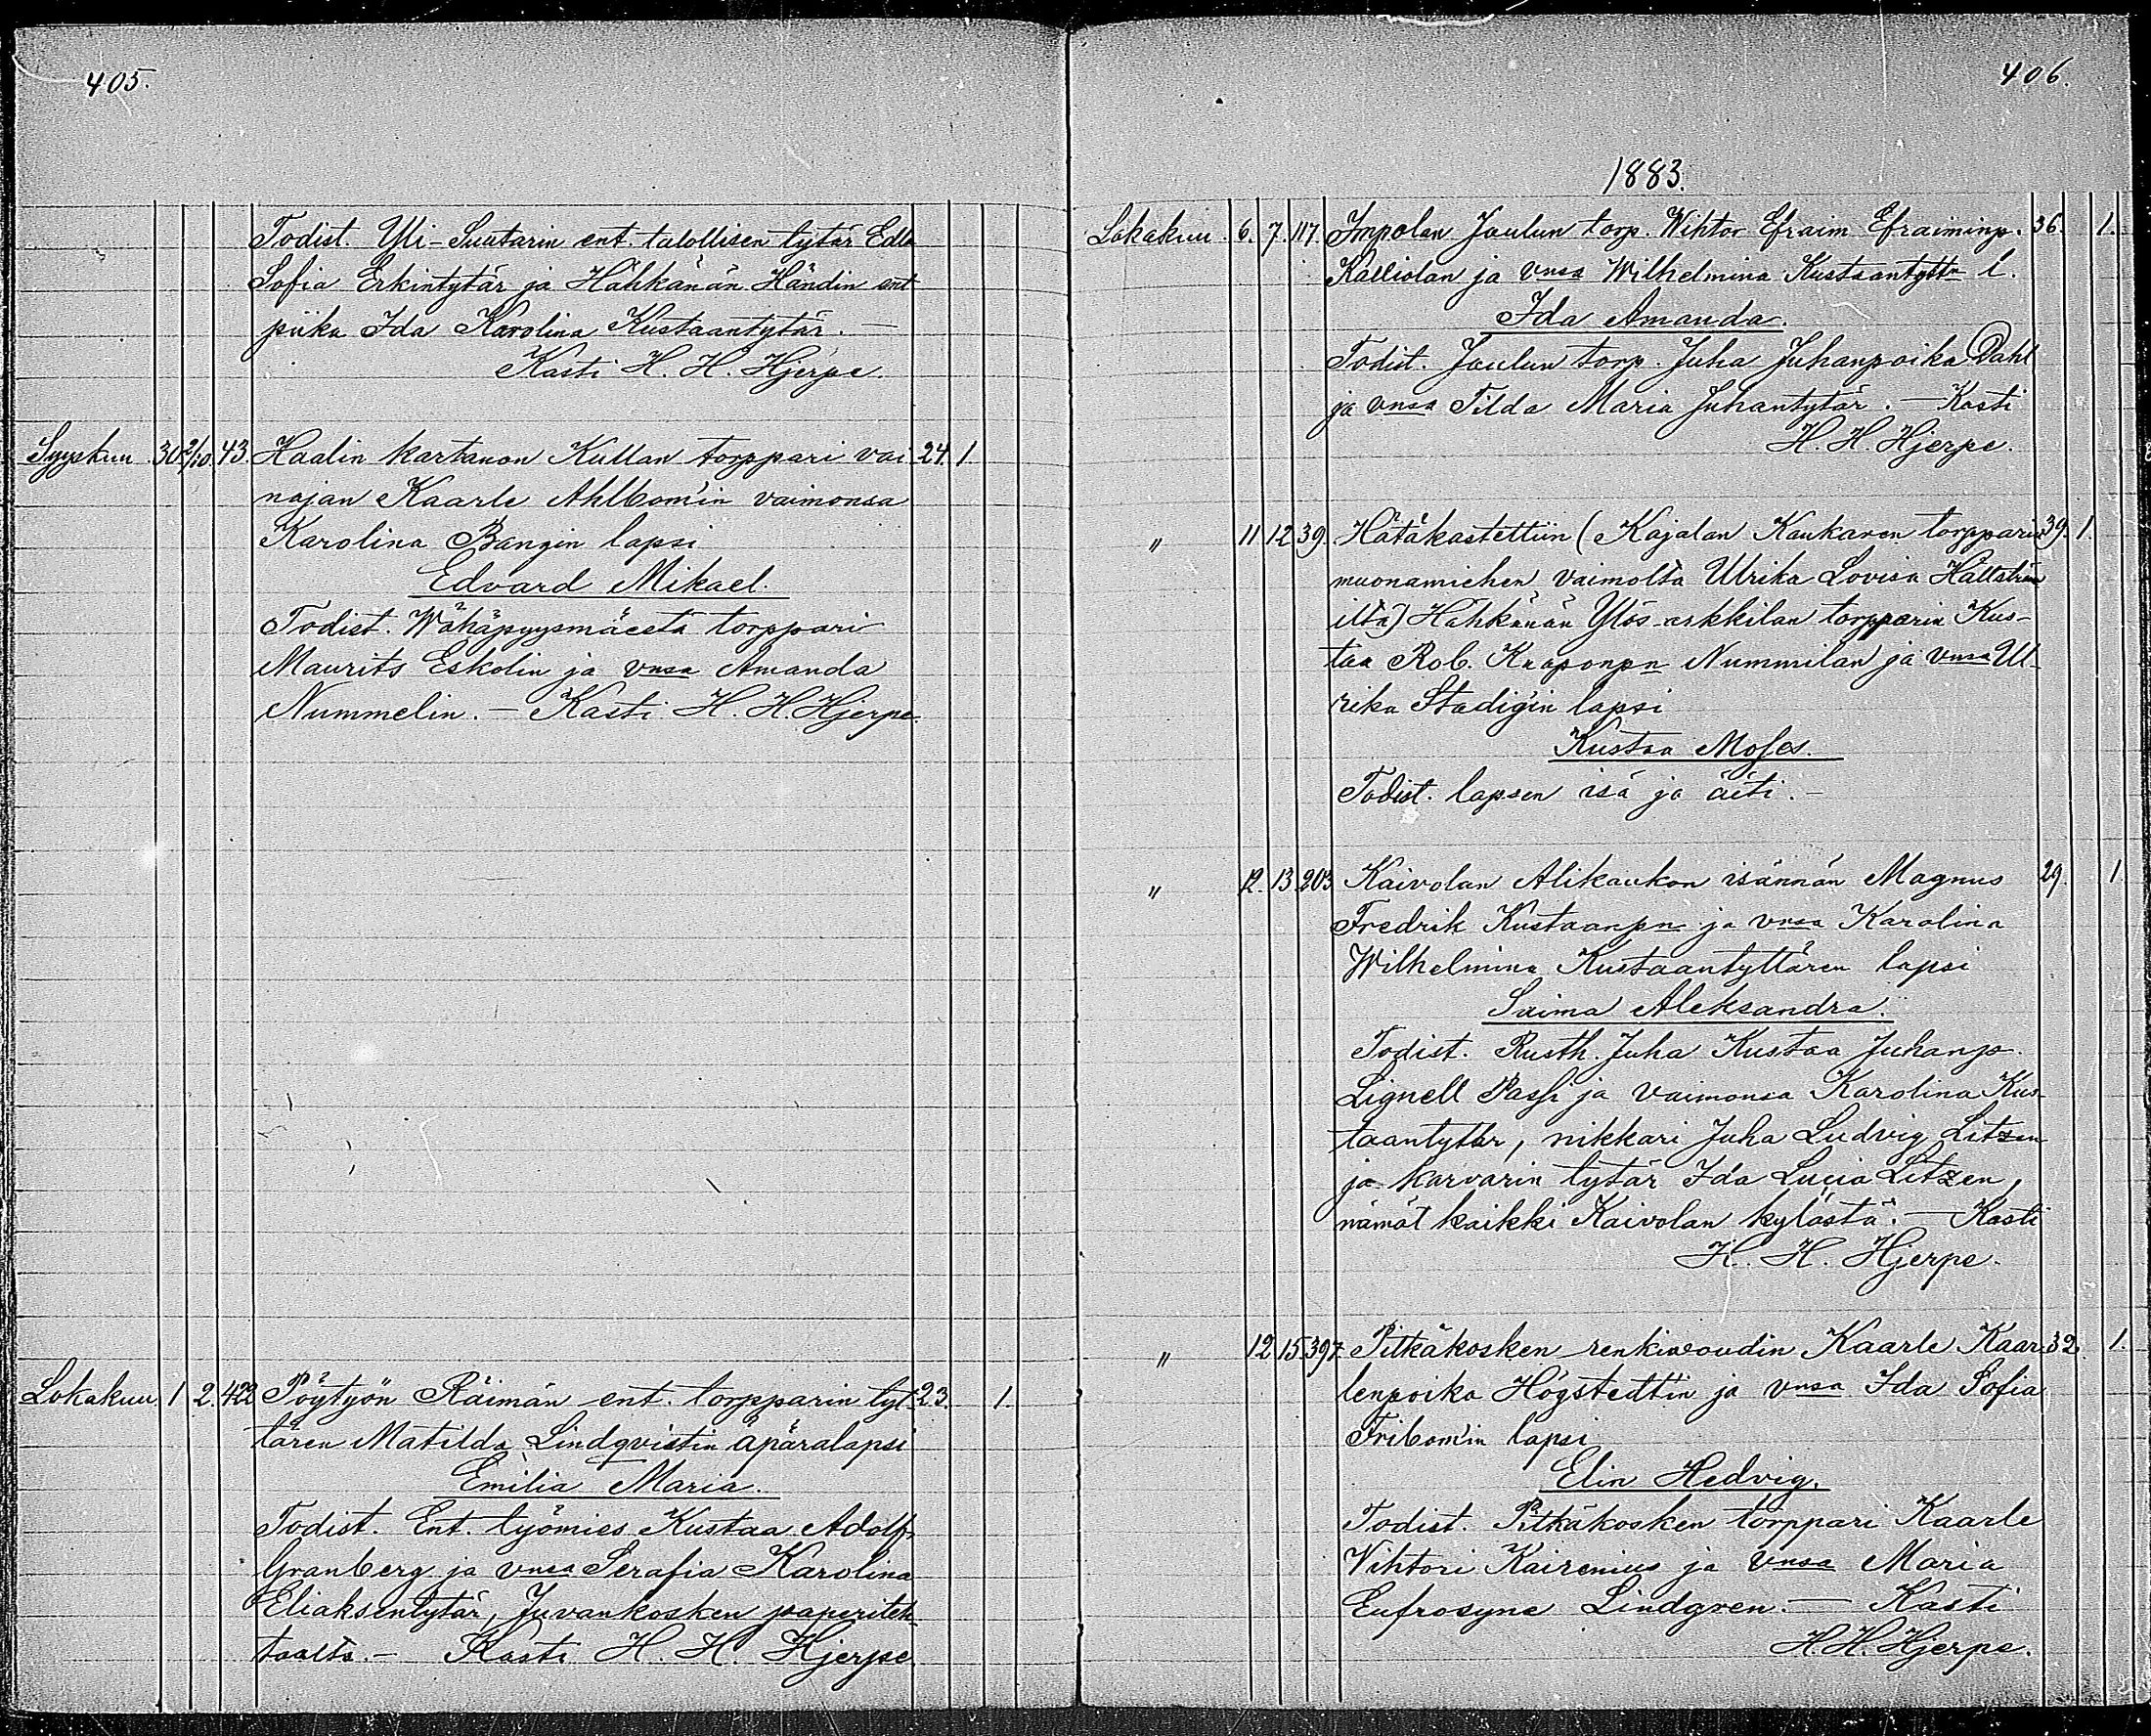 405.
Todist. Yli-Suutarin ent. talollisen tytär Edla
Sofia Erkintytär ja Hähkänän Händin ent
piika Ida Karolina Kustaantytär. —
Kasti H. H. Hjerpe.
Syyskuu 30 2/10. 43. Haalin kartanon Kullan torppari vai 24. 1.
najan Kaarle Ahlbom'in vaimonsa
Karolina Bangin lapsi
Edvard Mikael.
Todist. Wähäpyysmäestä torppari
Maurits Eskolin ja vnsa Amanda
Nummelin. — Kasti H. H. Hjerpe.
Lokakuu 1 2. 422 Pöytyön Räimän ent. torpparin tyt- 23. 1.
tären Matilda Lindqvistin äpäralapsi
Emilia Maria.
Todist. Ent. työmies Kustaa Adolf
Granberg ja vnsa Serafia Karolina
Eliaksentytär, Juvankosken paperiteh-
taalta. — Kasti H. H. Hjerpe.
406.
1883.
Lokakuu. 6. 7. 117. Impolan Joulun torp. Wihtor Efraim Efraiminp. 36. 1.
Kalliolan ja vnsa Wilhelmina Kustaantyttn l.
Ida Amanda.
Todist. Joulun torp. Juha Juhanpoika Dahl
ja vnsa Tilda Maria Juhantytär. — Kasti
H. H. Hjerpe.
" 11 12 39. Hätäkastettiin (Kajalan Kaukaren torpparin 39. 1.
muonamiehen vaimolta Ulrika Lovisa Hällström
iltä) Hähkänän Ylös-erkkilan torpparin Kus-
taa Rob. Nummilan ja vnsa Ul-
rika Stadigin lapsi
Kustaa Moses.
Todist. lapsen isä ja äiti. —
" 12. 13 203 Kaivolan Alikaukon isännän Magnus 29. 1
Fredrik Kustaanpn ja vnsa Karolina
Wilhelmina Kustaantyttären lapsi
Saima Aleksandra.
Todist. Rusth. Juha Kustaa Juhanp.
Lignell Passi ja vaimonsa Karolina Kus-
taantytär, nikkari Juha Ludvig Litzen
ja karvarin tytär Ida Lucia Litzen,
nämät kaikki Kaivolan kylästä. — Kasti
H. H. Hjerpe.
" 12 15. 397. Pitkäkosken renkivoudin Kaarle Kaar- 32. 1.
lenpoika Högstedtin ja vnsa Ida Sofia
Fribom'in lapsi
Elin Hedvig.
Todist. Pitkäkosken torppari Kaarle
Vihtori Kairenius ja vnsa Maria
Eufrosyne Lindgren. — Kasti
H. H. Hjerpe.